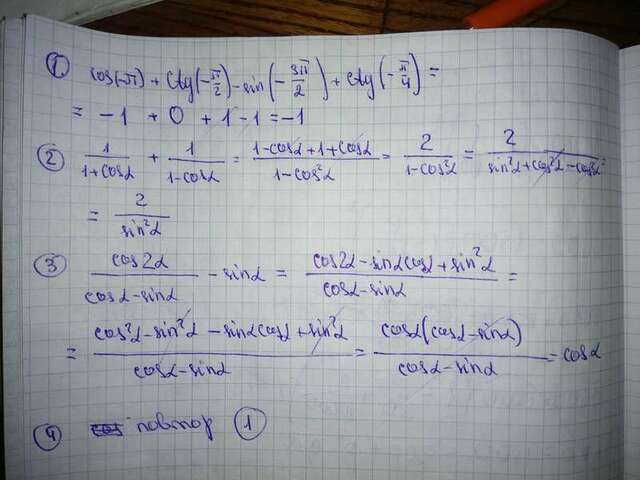 ① cos(-π) + ctg(-π/2) - sin(-3π/2) + ctg(-π/4) =
= -1 + 0 + 1 - 1 = -1
② 1/(1+cosα) + 1/(1-cosα) = (1-cosα+1+cosα)/(1-cos²α) = 2/(1-cos²α) = 2/(sin²α+cos²α-cos²α) =
= 2/sin²α
③ cos2α/(cosα-sinα) - sinα = (cos2α-sinαcosα+sin²α)/(cosα-sinα) =
= (cos²α-sin²α-sinαcosα+sin²α)/(cosα-sinα) = cosα(cosα-sinα)/(cosα-sinα) = cosα
④ повтор ①